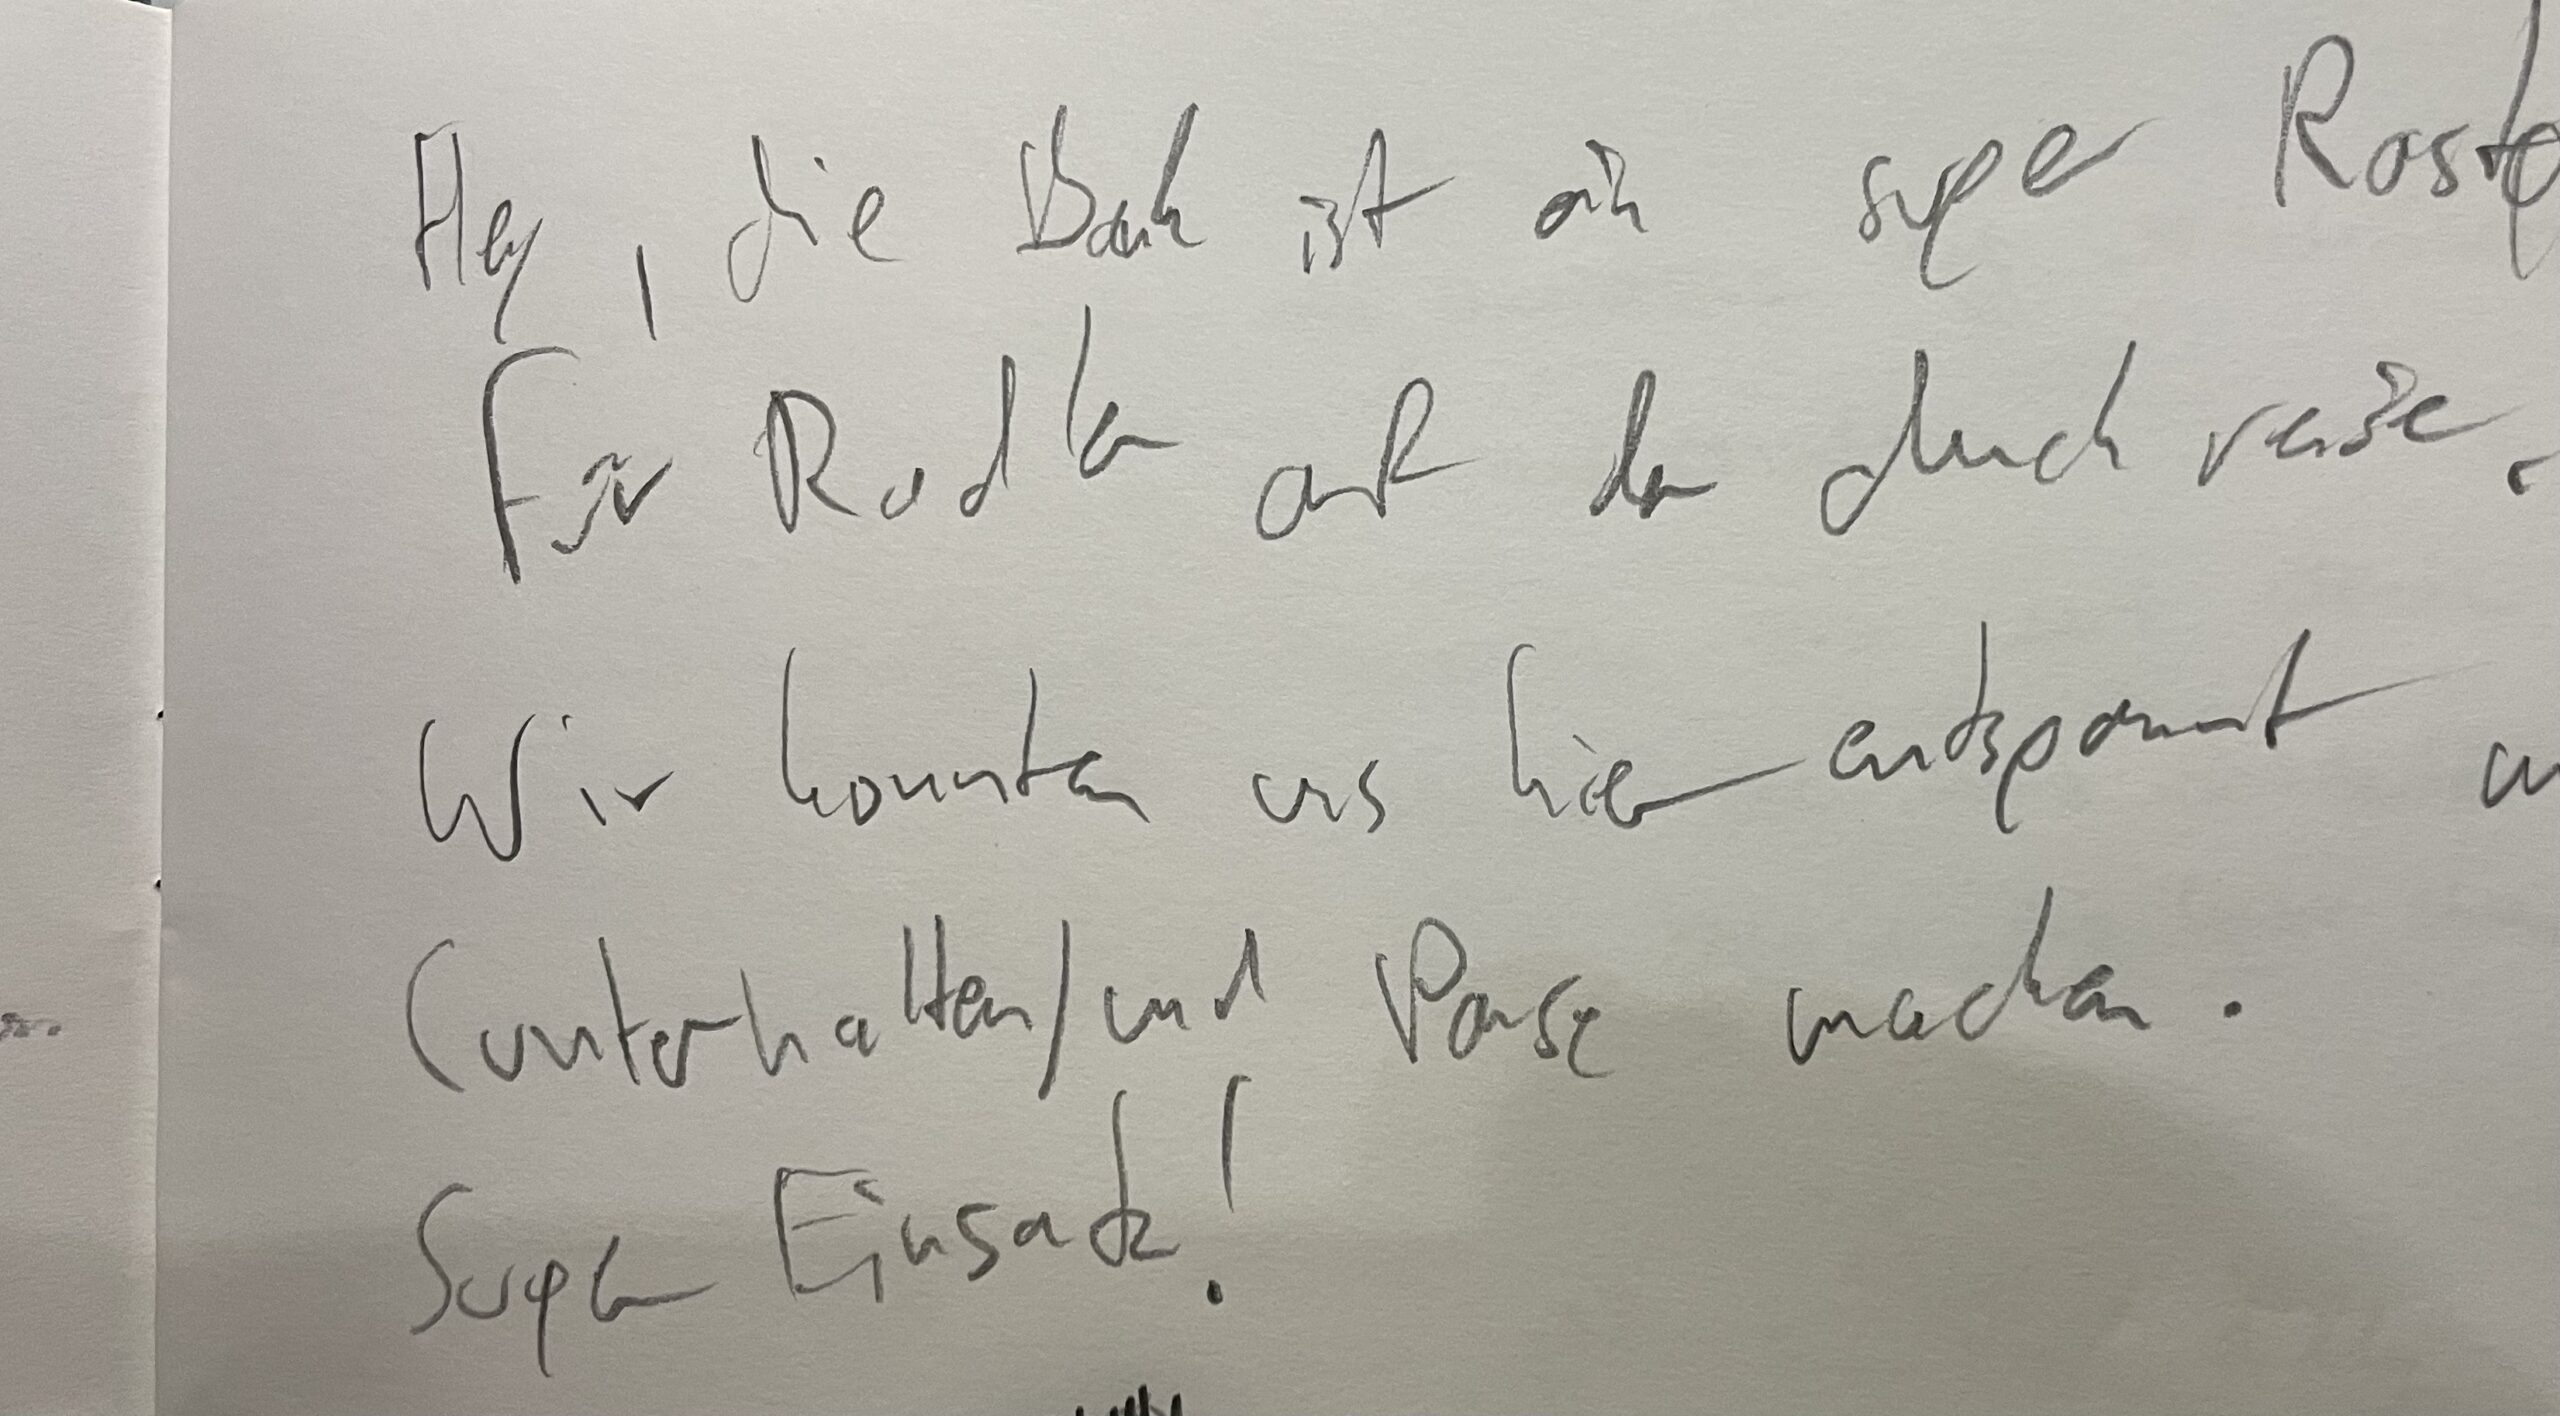 Hey, die Bank ist ein super Rastp
Für Radler auf der durchreise.
Wir konnten uns hier entspannt
(unterhalten) und Pause machen.
Super Einsatz!